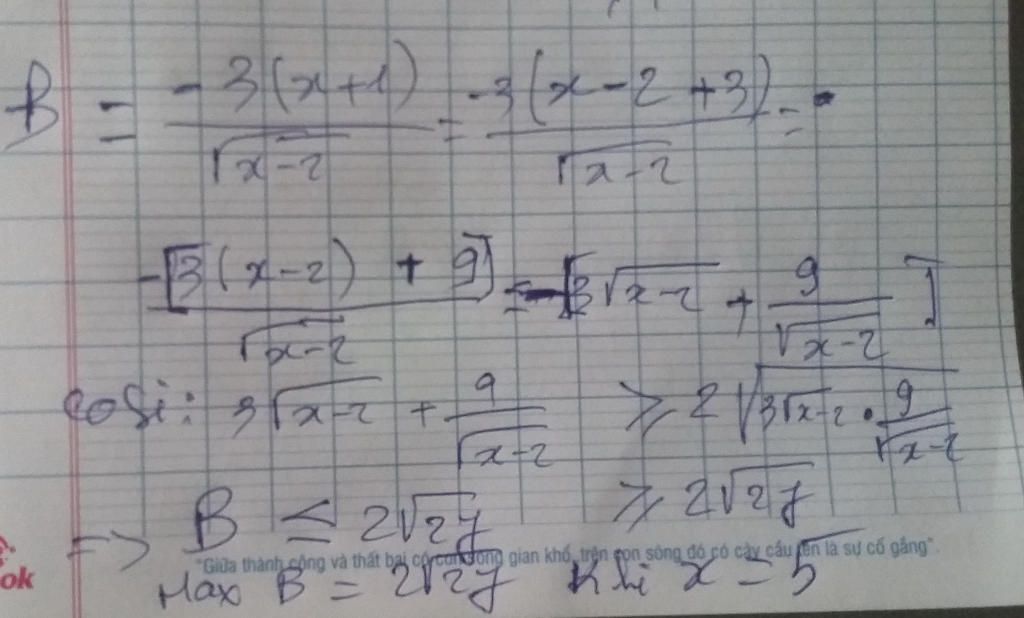 B = -3(x+1)/√(x-2) = -3(x-2+3)/√(x-2) = -
-[3(x-2) + 9]/√(x-2) = -[3√(x-2) + 9/√(x-2)]
cosi: 3√(x-2) + 9/√(x-2) ≥ 2√(3√(x-2) · 9/√(x-2))
≥ 2√27
=> B ≤ 2√27
"Giữa thành công và thất bại có con sông gian khổ, trên con sông đó có cây cầu tên là sự cố gắng".
ok
Max B = 2√27 khi x = 5